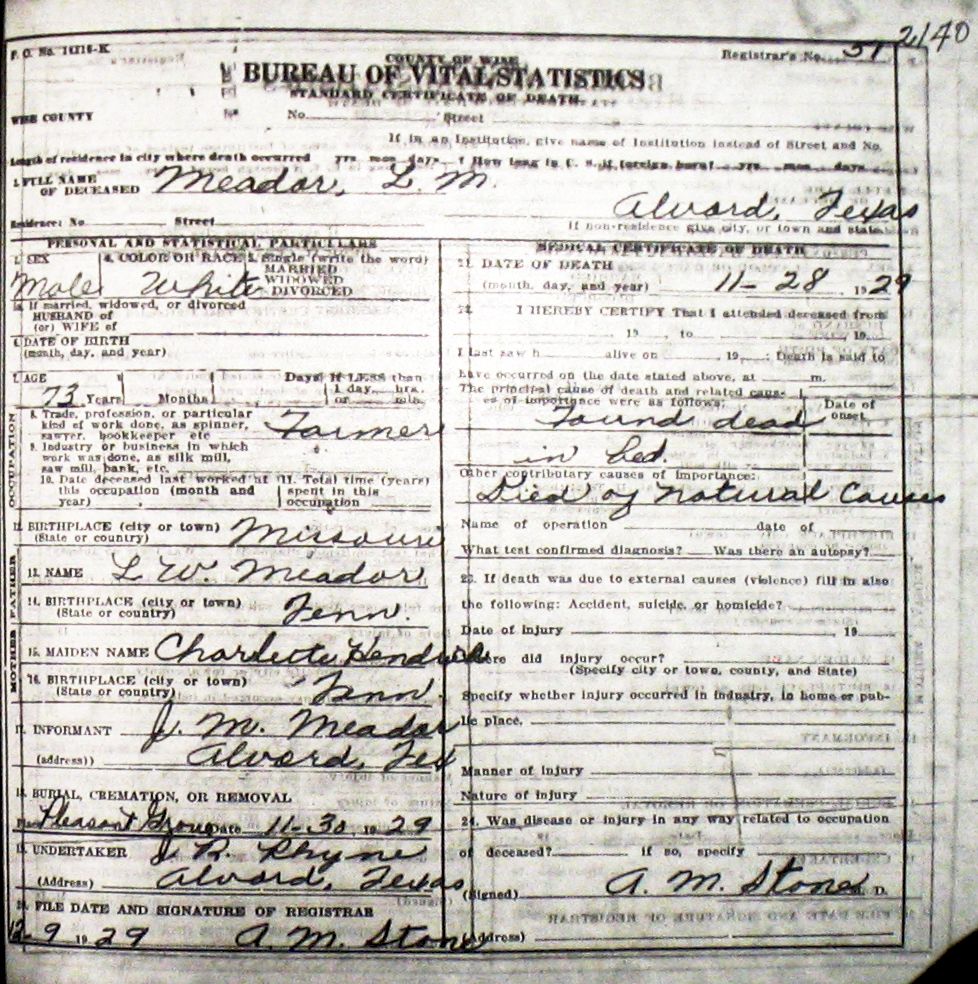 F. O. No. 14216-K
2140
COUNTY OF WISE
Registrar's No. 51
BUREAU OF VITAL STATISTICS
STANDARD CERTIFICATE OF DEATH
WISE COUNTY No. Street
If in an Institution, give name of Institution instead of Street and No.
Length of residence in city where death occurred yrs mos days How long in U. S. if foreign born? yrs mos days
1. FULL NAME
OF DECEASED Meador, L. M.
Alvord, Texas
Residence: No Street If non-residence give city, or town and state
PERSONAL AND STATISTICAL PARTICULARS
3. SEX 4. COLOR OR RACE 5. Single (write the word)
MARRIED
Male White WIDOWED
DIVORCED
If married, widowed, or divorced
HUSBAND of
(or) WIFE of
6. DATE OF BIRTH
(month, day, and year)
7. AGE Days If LESS than
1 day, hrs.
73 Years Months or min.
OCCUPATION
8. Trade, profession, or particular
kind of work done, as spinner,
sawyer, bookkeeper etc Farmer
9. Industry or business in which
work was done, as silk mill,
saw mill, bank, etc.
10. Date deceased last worked at 11. Total time (years)
this occupation (month and spent in this
year) occupation
12. BIRTHPLACE (city or town) Missouri
(State or country)
FATHER
13. NAME L W. Meador
14. BIRTHPLACE (city or town)
(State or country) Tenn.
MOTHER
15. MAIDEN NAME Charlotte
16. BIRTHPLACE (city or town)
(State or country) Tenn.
17. INFORMANT J. M. Meador
(address)) Alvord, Tex
18. BURIAL, CREMATION, OR REMOVAL
Place Pleasant Grove Date 11-30 1929
19. UNDERTAKER J R. Rhyne
(Address) Alvord, Texas
20. FILE DATE AND SIGNATURE OF REGISTRAR
12 9 1929 A. M. Stone
MEDICAL CERTIFICATE OF DEATH
21. DATE OF DEATH
(month, day, and year) 11-28 1929
22. I HEREBY CERTIFY That I attended deceased from
19 to , 19
I last saw h alive on , 19 ; Death is said to
have occurred on the date stated above, at m.
The principal cause of death and related causes
of importance were as follows: Date of
onset
Found dead
in bed.
Other contributary causes of importance:
Died of natural Causes
Name of operation date of
What test confirmed diagnosis? Was there an autopsy?
23. If death was due to external causes (violence) fill in also
the following: Accident, suicide, or homicide?
Date of injury 19
Where did injury occur?
(Specify city or town, county, and State)
Specify whether injury occurred in industry, in home or pub-
lic place,
Manner of injury
Nature of injury
24. Was disease or injury in any way related to occupation
of deceased? if so, specify
(Signed) A. M. Stone M. D.
(Address)